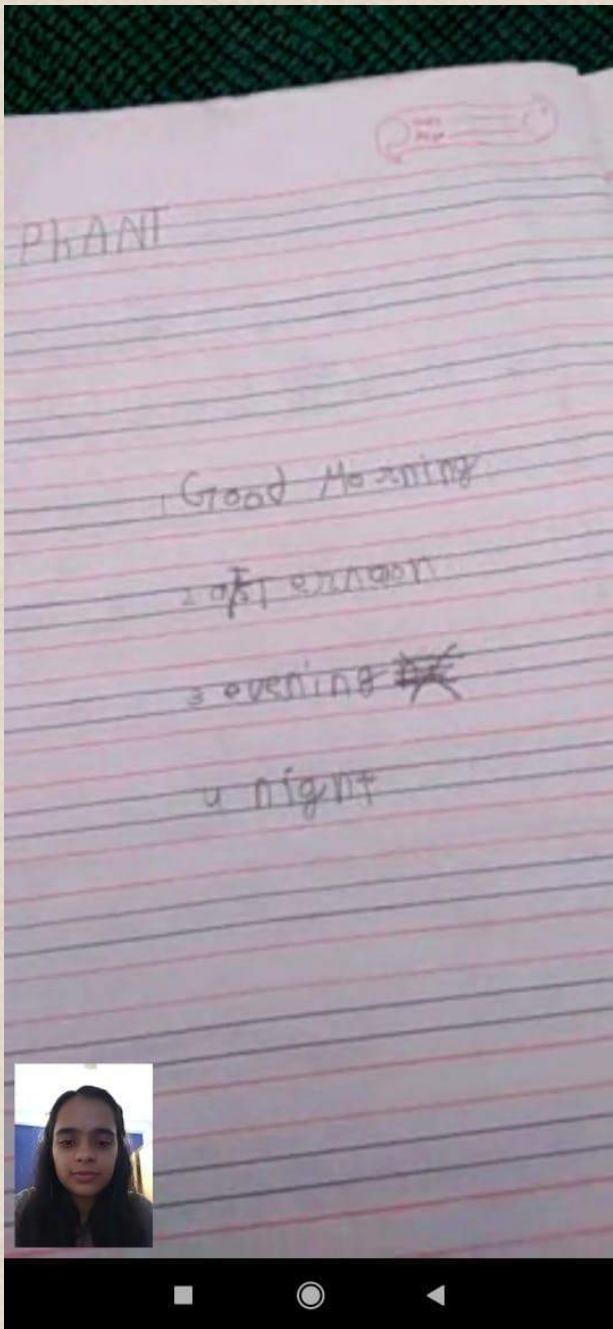 PhANT
1 Good Morning
2 afternoon
3 evening
4 night